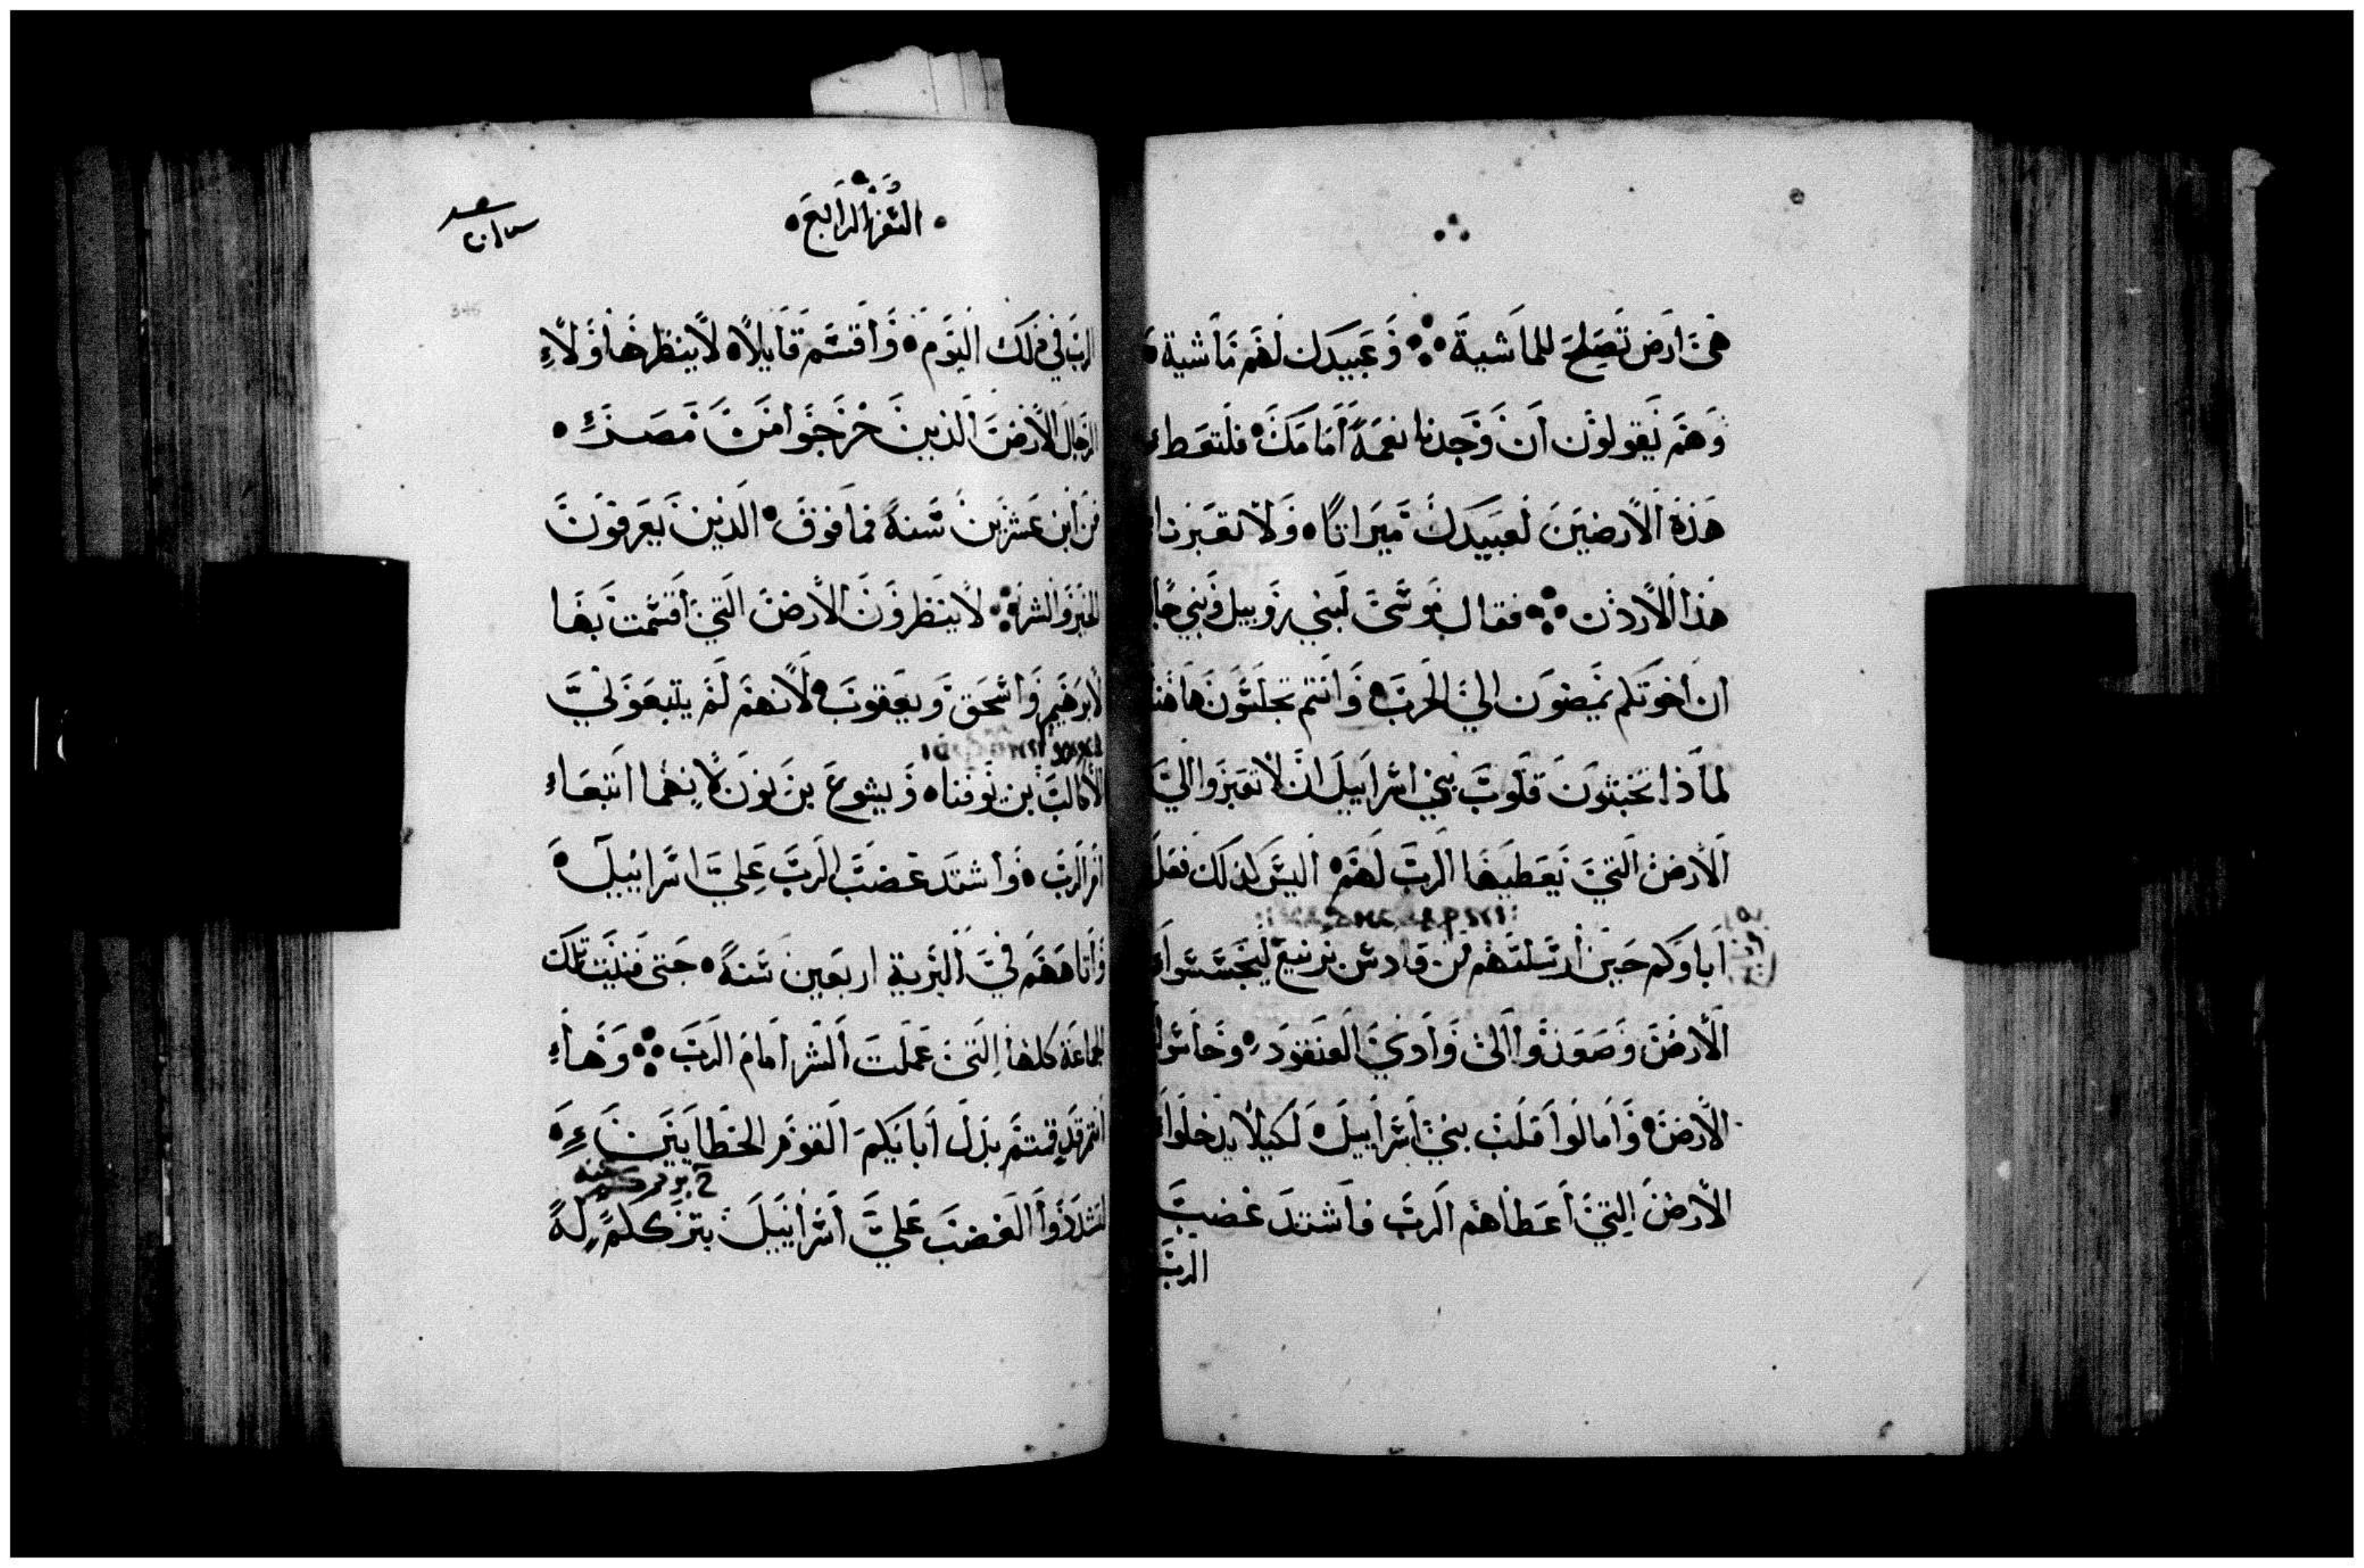 هي ارض تصلح للماشية وعبيدك لهم ماشية
وهم يقولون ان وجدنا نعمة امامك فلتعط
هذه الارضين لعبيدك ميراثا ولا تعبرنا
هذا الاردن فقال موسى لبني روبيل وبني جاد
ان اخوتكم يمضون الي الحرب وانتم تجلسون هاهنا
لماذا تخبثون قلوب بني اسراييل ان لا تعبروا الي
الارض التي يعطيها الرب لهم اليس كذلك فعل
اباوكم حين ارسلتهم من قادس برنيع ليجسسوا
الارض وصعدوا الى وادي العنقود وجاسوا
الارض وامالوا قلب بني اسراييل لكيلا يدخلوا
الارض التي اعطاهم الرب فاشتد غضب
الرب
السفر الرابع
الرب في ذلك اليوم واقسم قايلا لا ينظر هاولاء
الرجال الارض الذين خرجوا من مصر
من ابن عشرين سنة فما فوق الذين يعرفون
الخير والشر لا ينظرون الارض التي اقسمت بها
لابرهيم واسحق ويعقوب لانهم لم يتبعوني
الا كالب بن يوفنا ويشوع بن نون لانهما اتبعا
امر الرب واشتد غضب الرب علي اسراييل
واتاههم في البرية اربعين سنة حتى فنيت تلك
الجماعة كلها التي عملت الشر امام الرب وها
انتم قد قمتم بدل ابايكم القوم الخطايين
لتشددوا الغضب علي اسراييل بترككم له